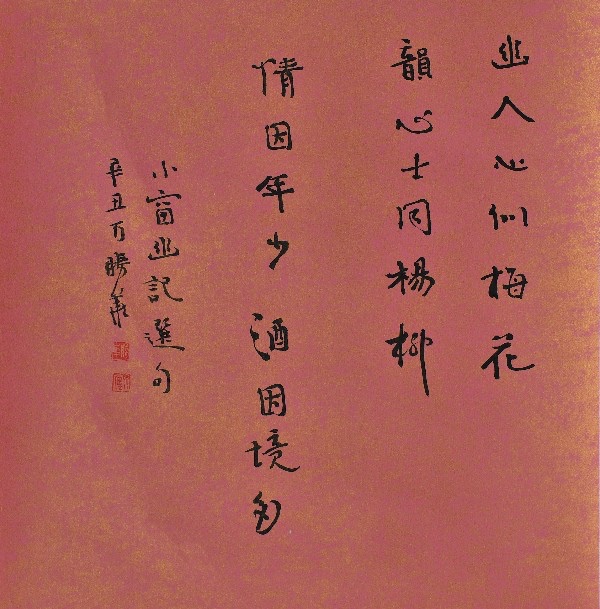 幽人心似梅花
韻心士同楊柳
情因年少酒因境多
小窗幽記選句
辛丑